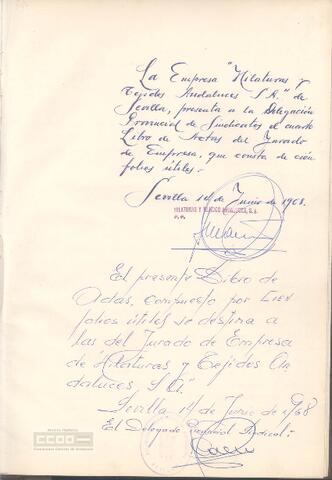 La Empresa "Hilaturas y
Tejidos Andaluces S.A." de
Sevilla, presenta a la Delegación
Provincial de Sindicatos el cuarto
Libro de Actas del Jurado
de Empresa, que consta de cien
folios útiles.-
Sevilla 14 de Junio de 1968.
HILATURAS Y TEJIDOS ANDALUCES, S. A.
P. P.
El presente Libro de
Actas, compuesto por cien
folios útiles se destina a
las del Jurado de Empresa
de "Hilaturas y Tejidos An
daluces, S.A".
Sevilla, 14 de Junio de 1968
El Delegado Provincial Sindical:
CCOO